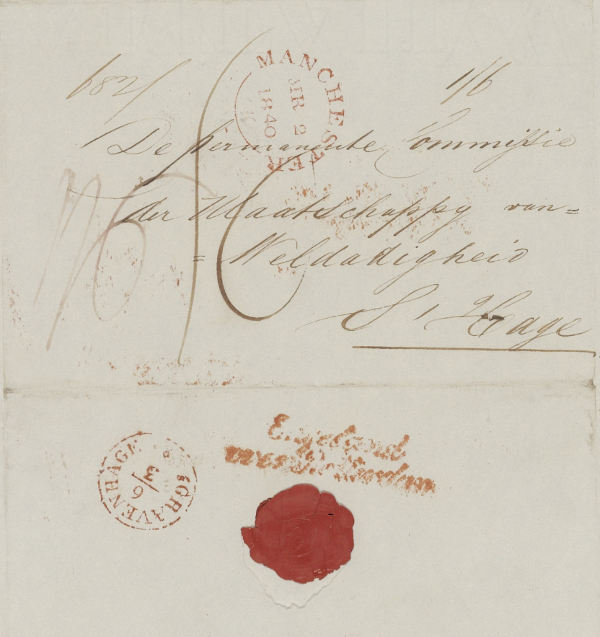 682/
1/6
MANCHESTER
MR 2
1840
De permanente Commissie
der Maatschappy van=
=Weldadigheid
S'Hage
Engeland
over Rotterdam
'S GRAVENHAGE
6/3